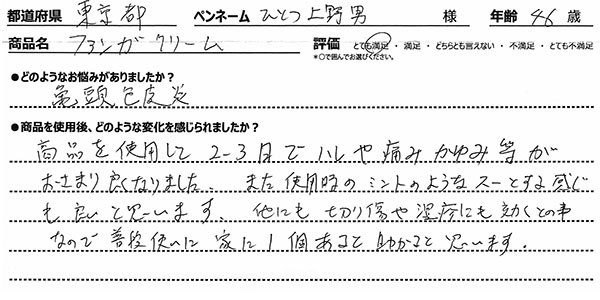 都道府県 東京都 ペンネーム ひとつ上野男 様 年齢 46 歳
商品名 ファンガクリーム 評価 とても満足 ・ 満足 ・ どちらとも言えない ・ 不満足 ・ とても不満足
*○で囲んでお選びください。
●どのようなお悩みがありましたか？
亀頭包皮炎
●商品を使用後、どのような変化を感じられましたか？
商品を使用して 2-3日で ハレや痛み かゆみ等が
おさまり良くなりました。 また使用時の ミントのようなスーとする感じ
も良いと思います。 他にも 切り傷や湿疹にも効くとの事
なので 普段使いに 家に1個あると 助かると思います。